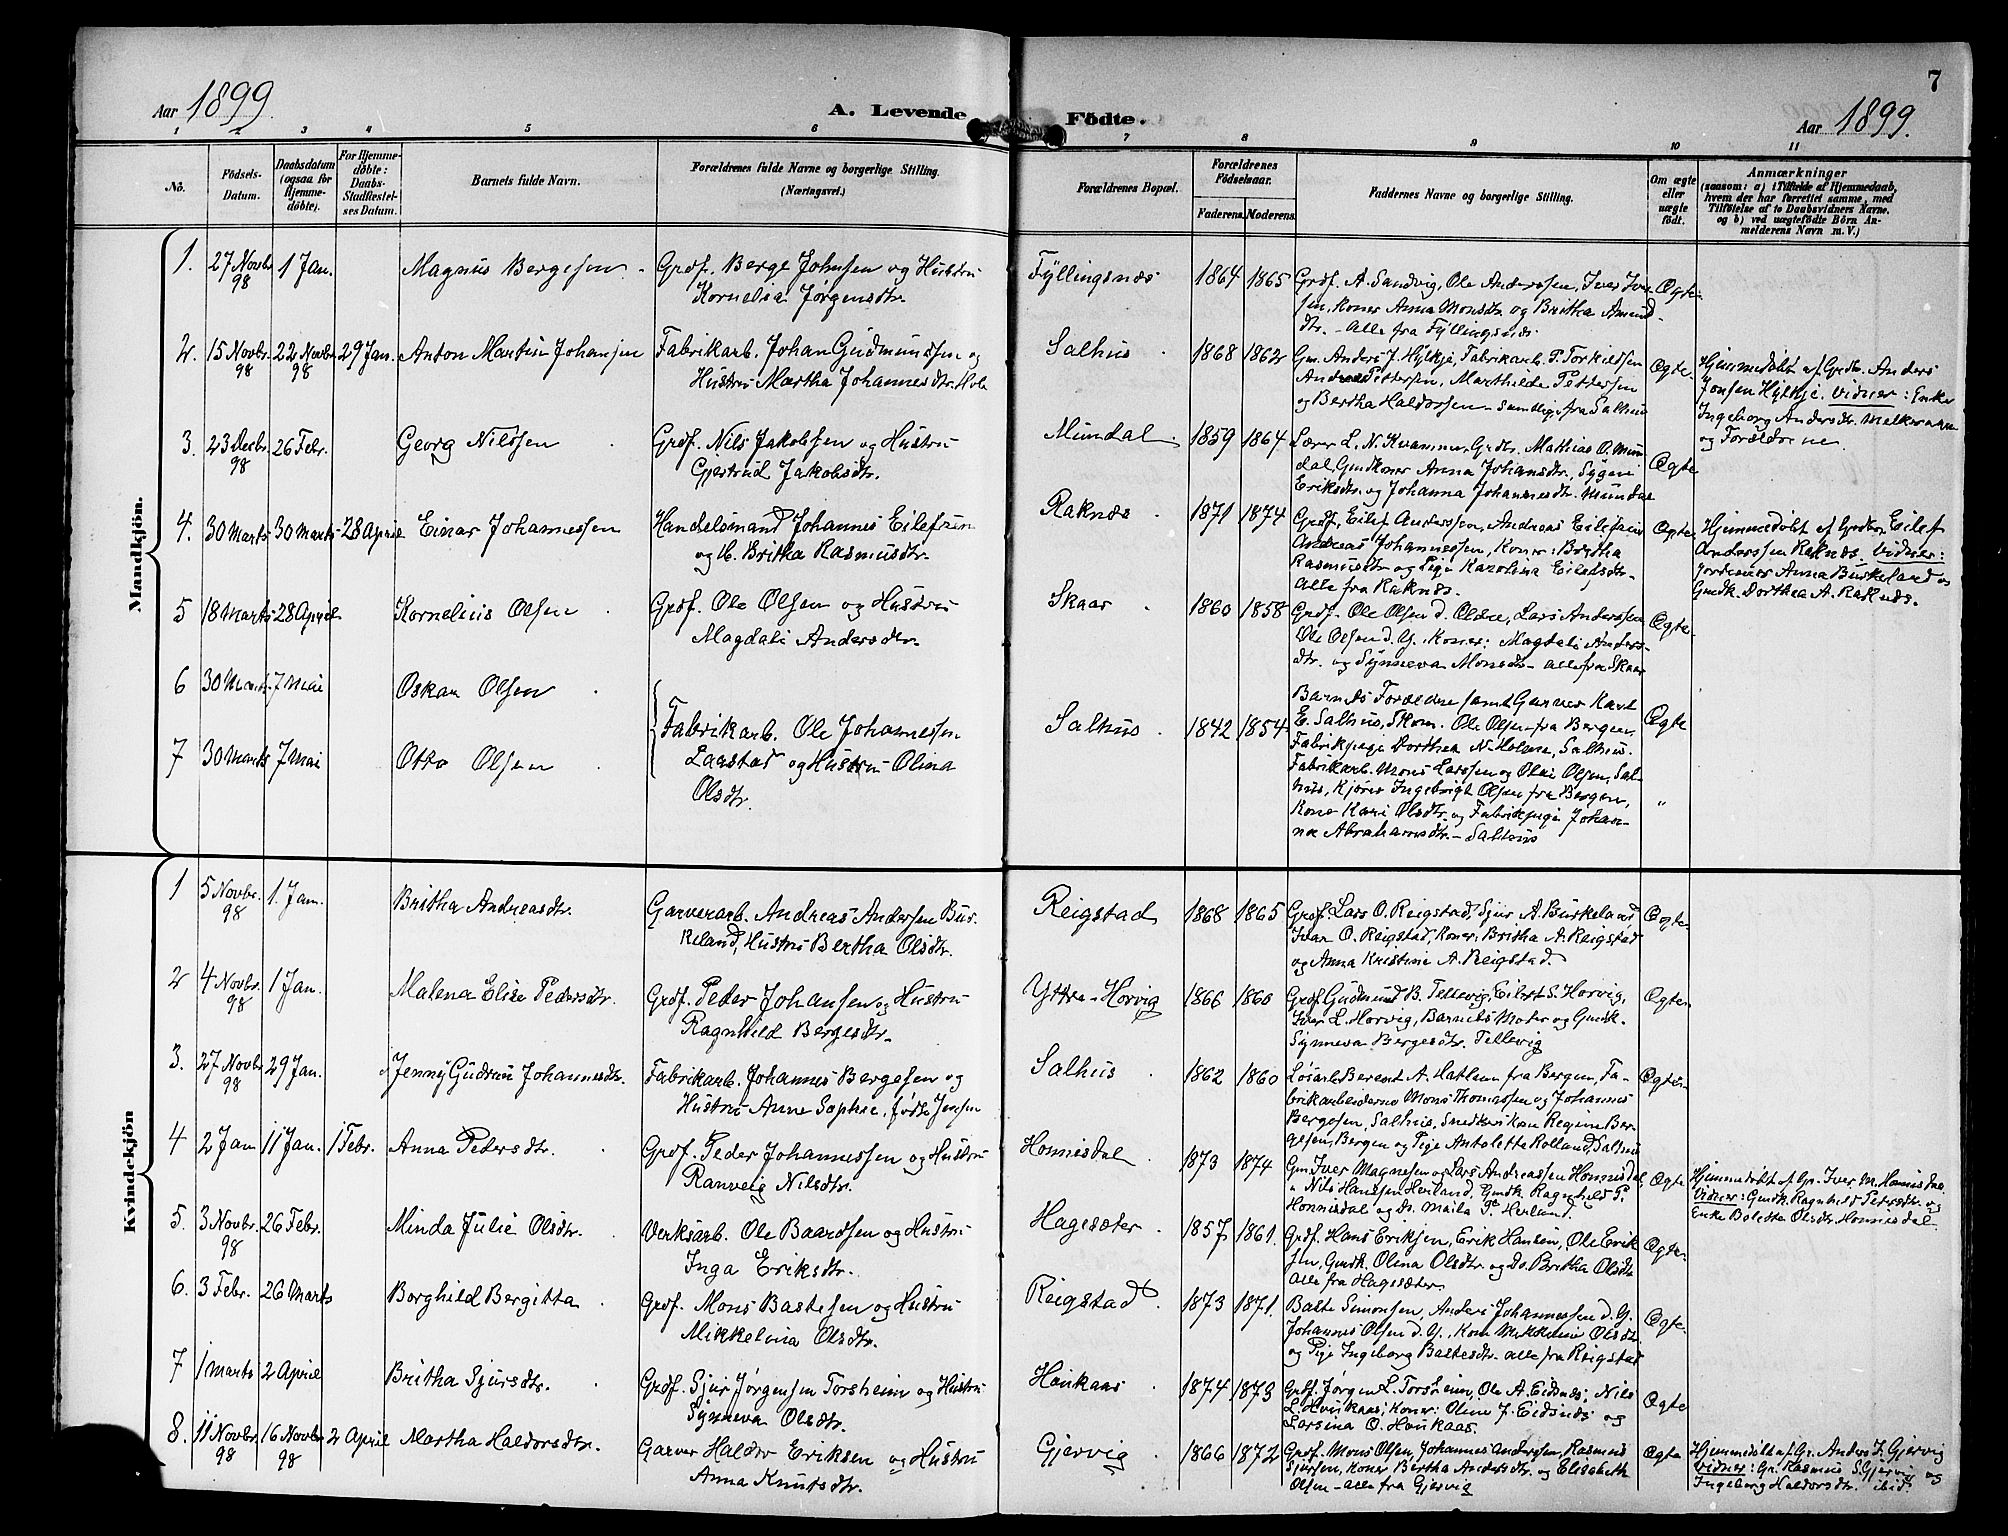 7
Aar 1899.
A. Levende
Födte.
Aar 1899.
1 2 3 4 5 6 7 8 9 10 11
No.
Födsels-
Datum.
Daabsdatum
(ogsaa for
Hjemme-
döbte).
For Hjemme-
döbte:
Daabs-
Stadfestel-
ses Datum.
Barnets fulde Navn.
Forældrenes fulde Navne og borgerlige Stilling.
(Næringsvei.)
Forældrenes Bopæl.
Forældrenes
Födselsaar.
Faderens. Moderens.
Faddernes Navne og borgerlige Stilling.
Om ægte
eller
uægte
födt.
Anmærkninger
(saasom: a) i Tilfælde af Hjemmedaab,
hvem der har forrettet samme, med
Tilföielse af to Daabsvidners Navne.
og b) ved uægtefödte Börn An-
melderens Navn m. V.)
Mandkjön.
1. 27 Novbr. 98 1 Jan. Magnus Bergesen
Grdf. Berge Johnsen og Hustru
Kornelia Jørgensdtr.
Fyllingsnæs 1864 1865
Grdf. A. Sandvig, Ole Anderssen, Iver Iver-
sen, Koner Anna Monsdtr. og Britha Amund-
dtr. - alle fra Fyllingsnæs.
Ægte.
2. 15 Novbr. 98 22 Novbr. 98 29 Jan. Anton Martin Johansen
Fabrikarb. Johan Gudmundsen og
Hustru Martha Johannesdtr.
Salhus 1868 1862
Gm. Anders J. Hylkje, Fabrikarb. P. Torkildsen
Andreas Pettersen, Marthilde Pettersen
og Bertha Haldorsen - samtlige fra Salhus
Ægte.
Hjemmedøbt af Grdb. Anders
Jonsen Hylkje. Vidner: Enke
Ingeborg Andersdtr.
og Forældrene
3. 23 Decbr. 98 26 Febr. Georg Nilssen
Grdf. Nils Jakobsen og Hustru
Gjertrud Jakobsdtr.
Mundal 1859 1864
Lærer L. N. Kvamme, Grdbr. Mathias O. Mun-
dal, Gmdkoner Anna Johansdtr., Sygni
Eriksdtr. og Johanna Johannesdtr. Mundal
Ægte
4. 30 Marts 30 Marts 28 April Einar Johannessen
Handelsmand Johannes Eilefsen
og H. Britha Rasmusdtr.
Raknæs 1871 1874
Grdf. Eilef Anderssen, Andreas Eilefsen
Andreas Johannessen, Koner: Britha
Rasmusdtr. og Pige Karolina Eilefsdtr.
alle fra Raknæs.
Ægte
Hjemmedøbt af Grdbr. Eilef
Anderssen Raknæs. Vidner:
Jordemor Anna Birkeland og
Gmdk. Dorthea A. Raknæs.
5 18 Marts 28 April Kornelius Olsen
Grdf. Ole Olsen og Hustru
Magdali Andersdtr.
Skaar 1860 1858
Grdf. Ole Olsen d. Ældre, Lars Anderssen
Ole Olsen d. Y. Koner: Magdali Anders-
dtr. og Synneva Monsdtr. - alle fra Skaar
Ægte
6 30 Marts 7 Mai Oskar Olsen
7 30 Marts 7 Mai Otto Olsen
Fabrikarb. Ole Johannessen
Laastad og Hustru Olina
Olsdtr.
Salhus 1842 1854
Barnets Forældre samt Garver Karl
E. Salhus, Skom. Ole Olsen fra Bergen,
Fabrikpige Dorthea N. Holme, Salhus.
Fabrikarb. Mons Larssen og Oline Olsen, Sal-
hus, Kjører Ingebrigt Olsen fra Bergen,
Kone Kari Olsdtr. og Fabrikpige Johan-
na Abrahamsdtr. - Salhus
Ægte
"
Kvindekjön
1 5 Novbr. 98 1. Jan. Britha Andreasdtr.
Garverarb. Andreas Andersen Bir-
keland, Hustru Bertha Olsdtr.
Reigstad 1868 1865
Grdf. Lars O. Reigstad, Sjur A. Birkeland
Ivar O. Reigstad, Koner: Britha A. Reigstad
og Anna Kristine A. Reigstad
Ægte
2 4 Novbr. 98 1 Jan. Malena Elise Pedersdtr.
Grdf. Peder Johansen og Hustru
Ragnhild Bergesdtr.
Yttre-Horvig 1866 1860
Grdf. Gudmund B. Tellevig, Eilert S. Horvig,
Iver L. Horvig, Barnets Moder og Gmdk.
Synneva Bergesdtr. Tellevig
Ægte
3. 27 Novbr. 98 29 Jan. Jenny Gudrun Johannesdtr.
Fabrikarb. Johannes Bergesen og
Hustru Anne Sophie, født Jensen
Salhus 1862 1860
Løsarb. Berent A. Hatlem fra Bergen, Fa-
brikarbeiderne Mons Thomssen og Johannes
Bergesen, Salhus, Snedkerkone Regine Ber-
gesen, Bergen og Pige Antolette Rolland, Salhus
Ægte
4 2 Jan. 11 Jan. 1 Febr. Anna Pedersdtr.
Grdf. Peder Johannessen og Hustru
Ranveig Nilsdtr.
Honnisdal 1873 1874
Gm. Iver Magnesen og Lars Andreassen Honnisdal
" Nils Hanssen Herland, Gmdk. Ragnhild P.
Honnisdal og Do. Maila P. Herland.
Ægte
Hjemmedøbt af Gr. Iver M. Honnisdal.
Vidner: Gmdk. Ragnhild Petersdtr. og
Enke Boletta Olsdtr. Honnisdal
5. 3 Novbr. 98 26 Febr. Minda Julie Olsdtr.
Verksarb. Ole Baardsen og Hustru
Inga Eriksdtr.
Hagesæter 1857 1861.
Grdf. Hans Eriksen, Erik Hansen, Ole Erik-
sen, Gmdk. Olina Olsdtr. og Do. Britha Olsdtr.
alle fra Hagesæter.
Ægte
6. 3 Febr. 26 Marts Borghild Bergitta
Grdf. Mons Bastesen og Hustru
Mikkelina Olsdtr.
Reigstad 1873 1871.
Baste Simonsen, Anders Johannessen d. Y.
Johannes Olsen d. Y., Kone Mikkeline Olsdtr.
og Pige Ingeborg Bastesdtr. alle fra Reigstad
Ægte.
7 1 Marts 2 April Britha Sjursdtr.
Grdf. Sjur Jørgensen Torsheim og Hustru
Synneva Olsdtr.
Houkaas 1874 1873
Grdf. Jørgen L. Torsheim, Ole A. Eidsnæs, Nils
L. Houkaas, Koner: Oline J. Eidsnæs og
Larsina O. Houkaas.
Ægte
8. 11 Novbr. 98 16 Novbr. 98 2 April Martha Haldorsdtr.
Garver Haldor Eriksen og Hustru
Anna Knutsdtr.
Gjervig 1866 1872
Grdf. Mons Olsen, Johannes Anderssen, Rasmus
Sjursen, Koner Bertha Andersdtr. og Elisabeth
Olsen - alle fra Gjervig
Ægte
Hjemmedøbt af Gr. Anders I. Gjervig
Vidner: Gr. Rasmus S. Gjervig og
Ingeborg Haldorsdtr. ibid.